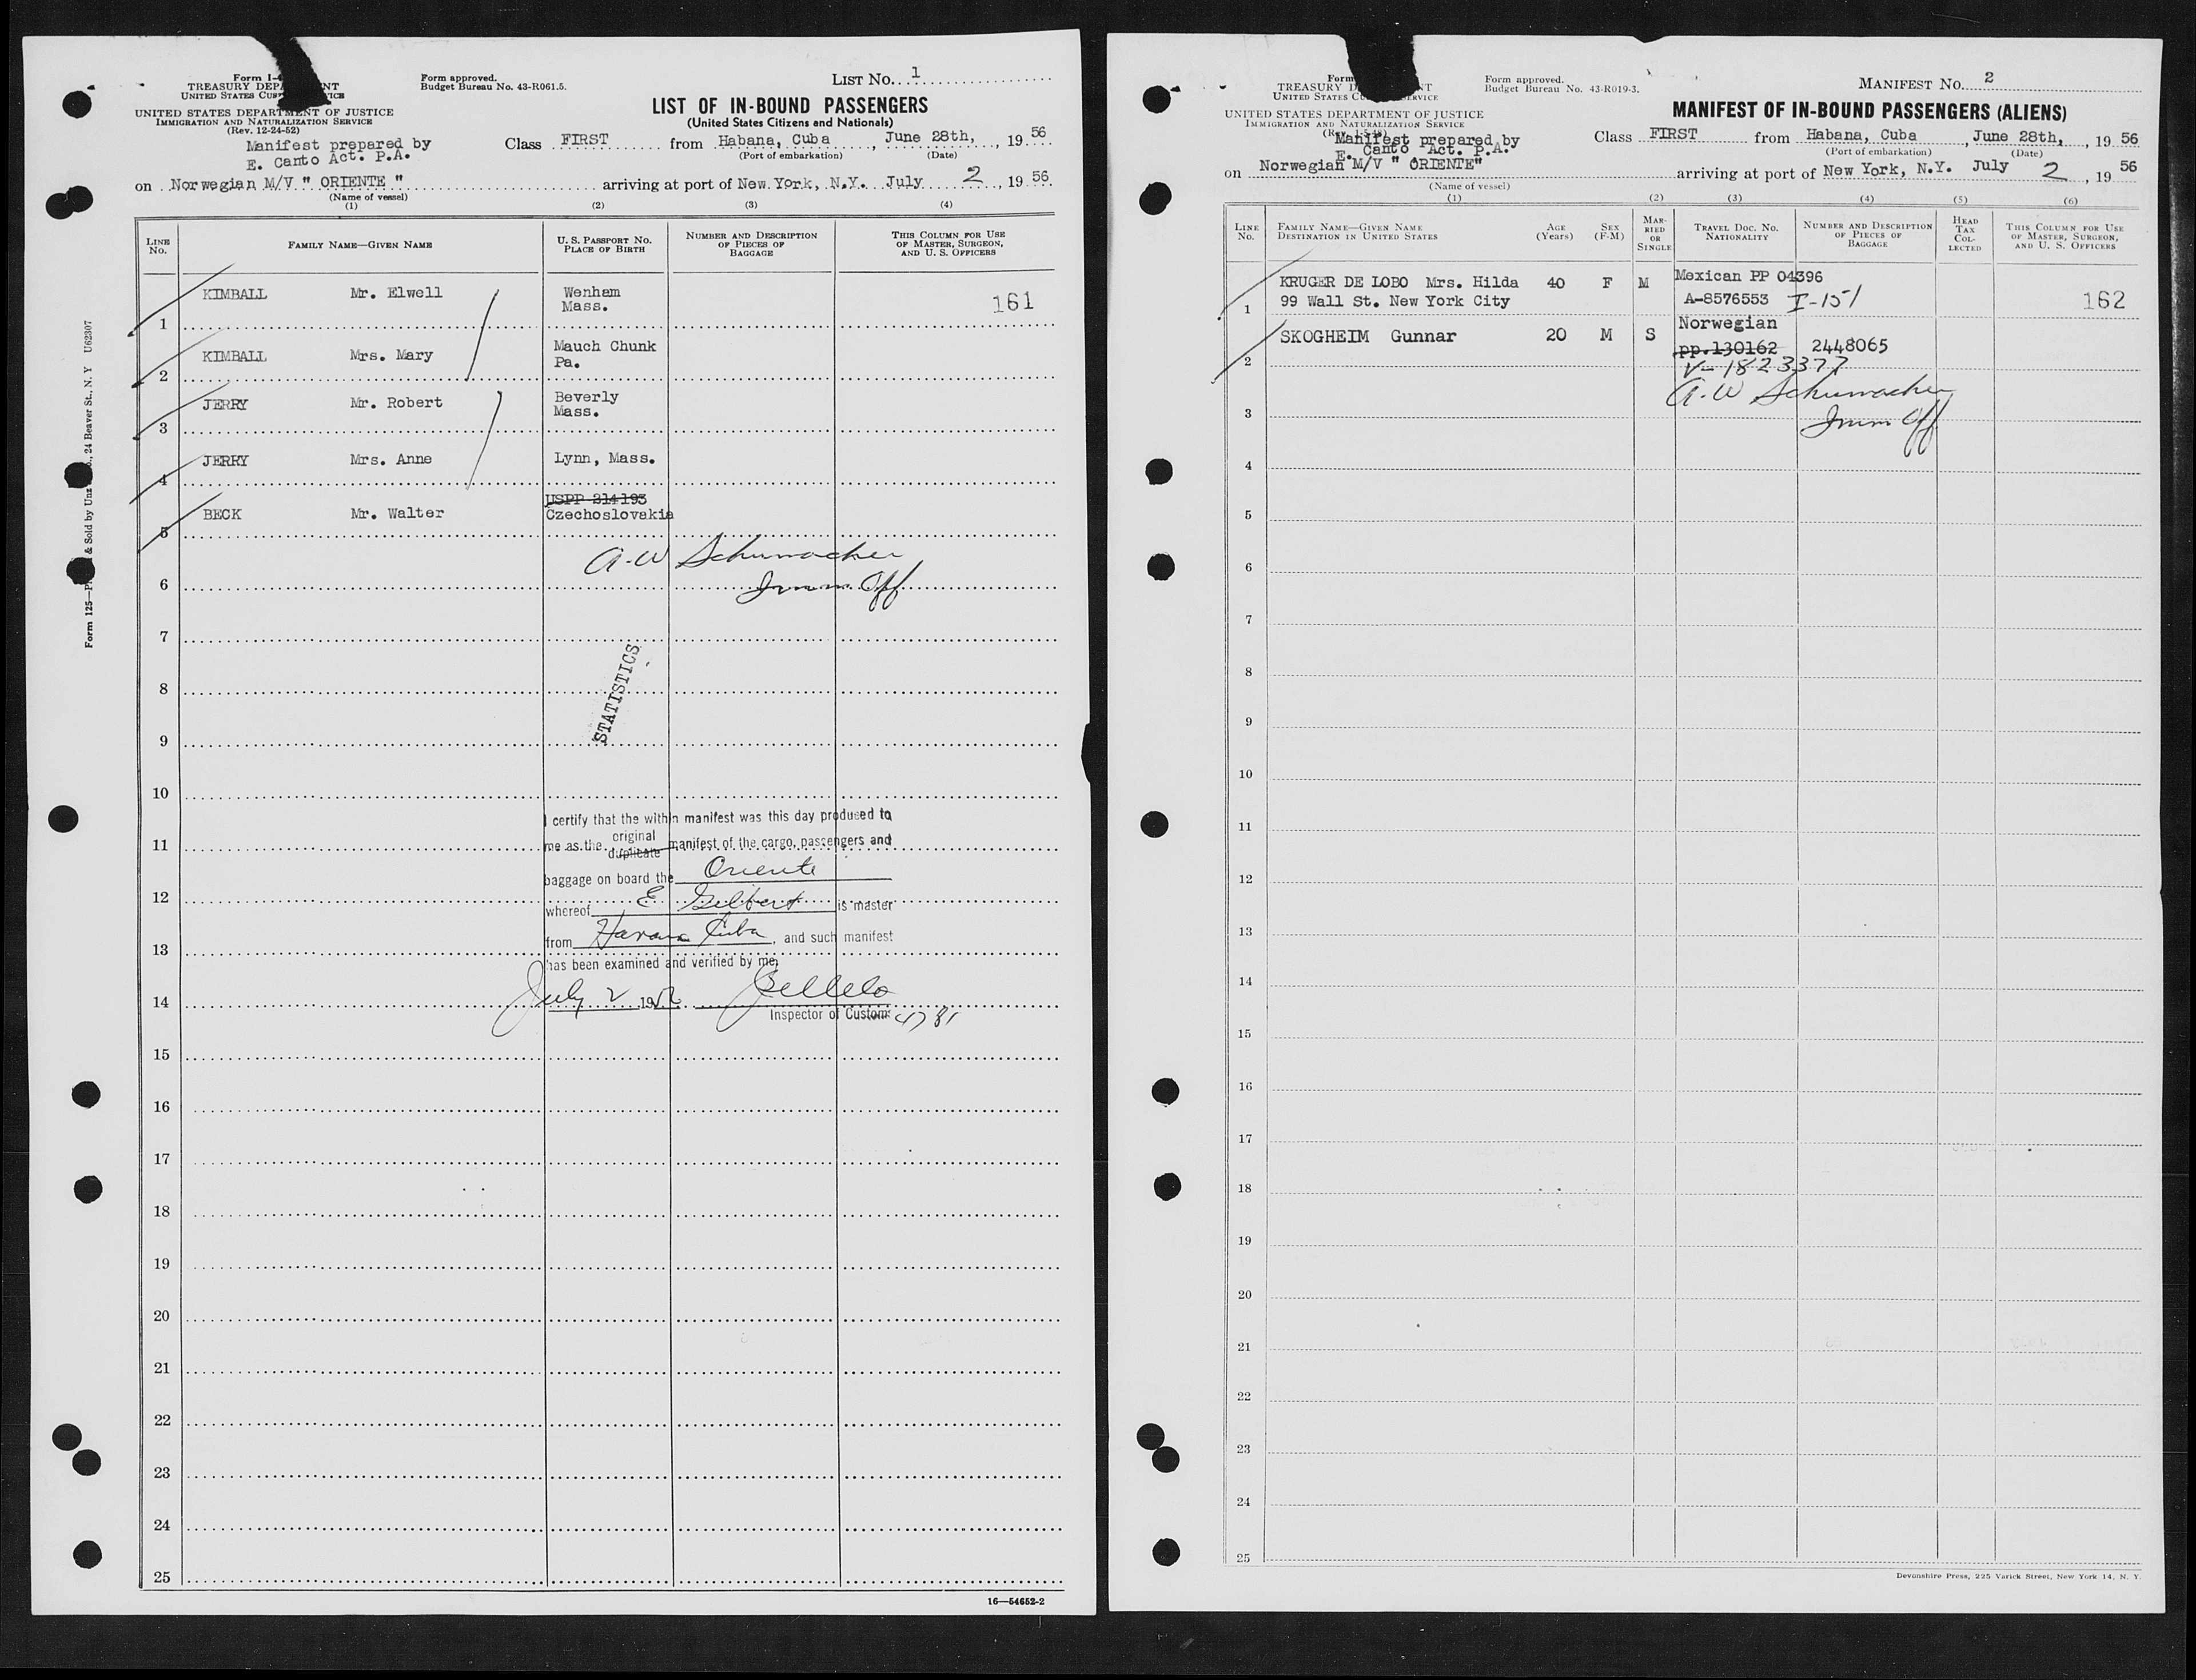 Form I-4
TREASURY DEPA NT
UNITED STATES CUS VICE
UNITED STATES DEPARTMENT OF JUSTICE
IMMIGRATION AND NATURALIZATION SERVICE
(Rev. 12-24-52)
Form approved.
Budget Bureau No. 43-R061.5.
LIST No. 1
LIST OF IN-BOUND PASSENGERS
(United States Citizens and Nationals)
Manifest prepared by
E. Canto Act. P.A.
Class FIRST from Habana, Cuba, June 28th, 1956
(Port of embarkation) (Date)
on Norwegian M/V " ORIENTE " arriving at port of New York, N.Y. July 2, 1956
(Name of vessel)
(1) (2) (3) (4)
LINE No. FAMILY NAME—GIVEN NAME U. S. PASSPORT No. PLACE OF BIRTH NUMBER AND DESCRIPTION OF PIECES OF BAGGAGE THIS COLUMN FOR USE OF MASTER, SURGEON, AND U. S. OFFICERS
1 KIMBALL Mr. Elwell Wenham Mass. 161
2 KIMBALL Mrs. Mary Mauch Chunk Pa.
3 JERRY Mr. Robert Beverly Mass.
4 JERRY Mrs. Anne Lynn, Mass.
USPP 214193
5 BECK Mr. Walter Czechoslovakia
A-W Schumacher
6 Imm Off
7
STATISTICS
8
9
10
I certify that the within manifest was this day produced to
11 me as the original duplicate manifest of the cargo, passengers and
baggage on board the Oriente
12 whereof E Gilbert is master
13 from Havana Cuba, and such manifest
has been examined and verified by me,
14 July 2 1956
Inspector of Customs 4781
15
16
17
18
19
20
21
22
23
24
25
16—54652-2
Form 125—P & Sold by Unz o., 24 Beaver St., N. Y U62307
Form
TREASURY D NT
UNITED STATES CU ERVICE
UNITED STATES DEPARTMENT OF JUSTICE
IMMIGRATION AND NATURALIZATION SERVICE
Form approved.
Budget Bureau No. 43-R019-3.
MANIFEST No. 2
MANIFEST OF IN-BOUND PASSENGERS (ALIENS)
Manifest prepared by
E. Canto Act. P.A.
Class FIRST from Habana, Cuba, June 28th, 1956
(Port of embarkation) (Date)
on Norwegian M/V " ORIENTE" arriving at port of New York, N.Y. July 2, 1956
(Name of vessel)
(1) (2) (3) (4) (5) (6)
LINE No. FAMILY NAME—GIVEN NAME DESTINATION IN UNITED STATES AGE (Years) SEX (F-M) MARRIED OR SINGLE TRAVEL DOC. No. NATIONALITY NUMBER AND DESCRIPTION OF PIECES OF BAGGAGE HEAD TAX COLLECTED THIS COLUMN FOR USE OF MASTER, SURGEON, AND U. S. OFFICERS
KRUGER DE LOBO Mrs. Hilda 40 F M Mexican PP 04396
1 99 Wall St. New York City A-8576553 I-151 162
SKOGHEIM Gunnar 20 M S Norwegian
2 pp.130162 2448065
V-1823377
A-W Schumacher
3 Imm Off
4
5
6
7
8
9
10
11
12
13
14
15
16
17
18
19
20
21
22
23
24
25
Devonshire Press, 225 Varick Street, New York 14, N. Y.